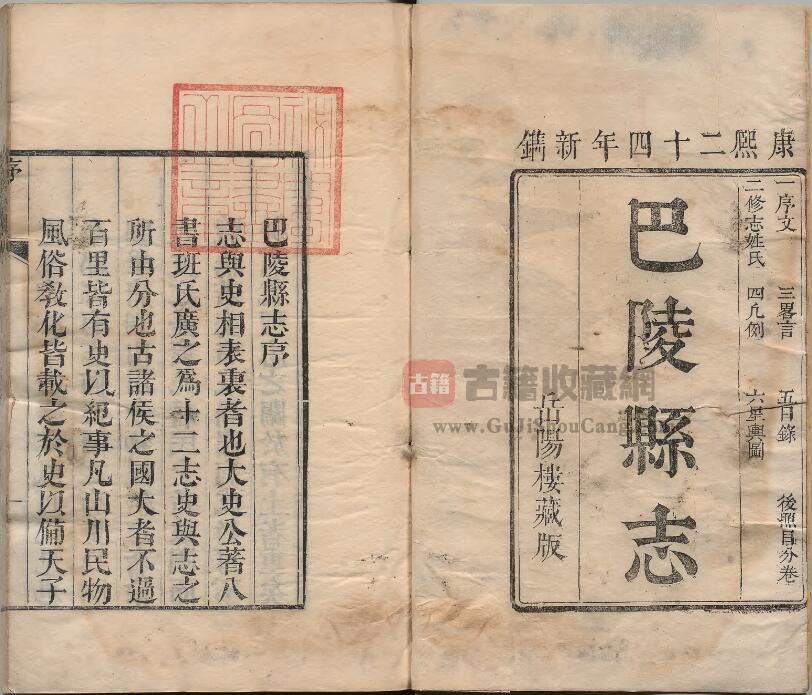 康熙二十四年新鐫
一序文 三畧言 五目錄 後照目分卷
二修志姓氏 四凡例 六星輿圖
巴陵縣志
岳陽樓藏版
巴陵縣志序
志與史相表裏者也大史公著八
書班氏廣之爲十二志史與志之
所由分也古諸侯之國大者不過
百里皆有史以紀事凡山川民物
風俗敎化皆載之於史以備天子
序
古籍
古籍收藏網
www.GuJiShouCang